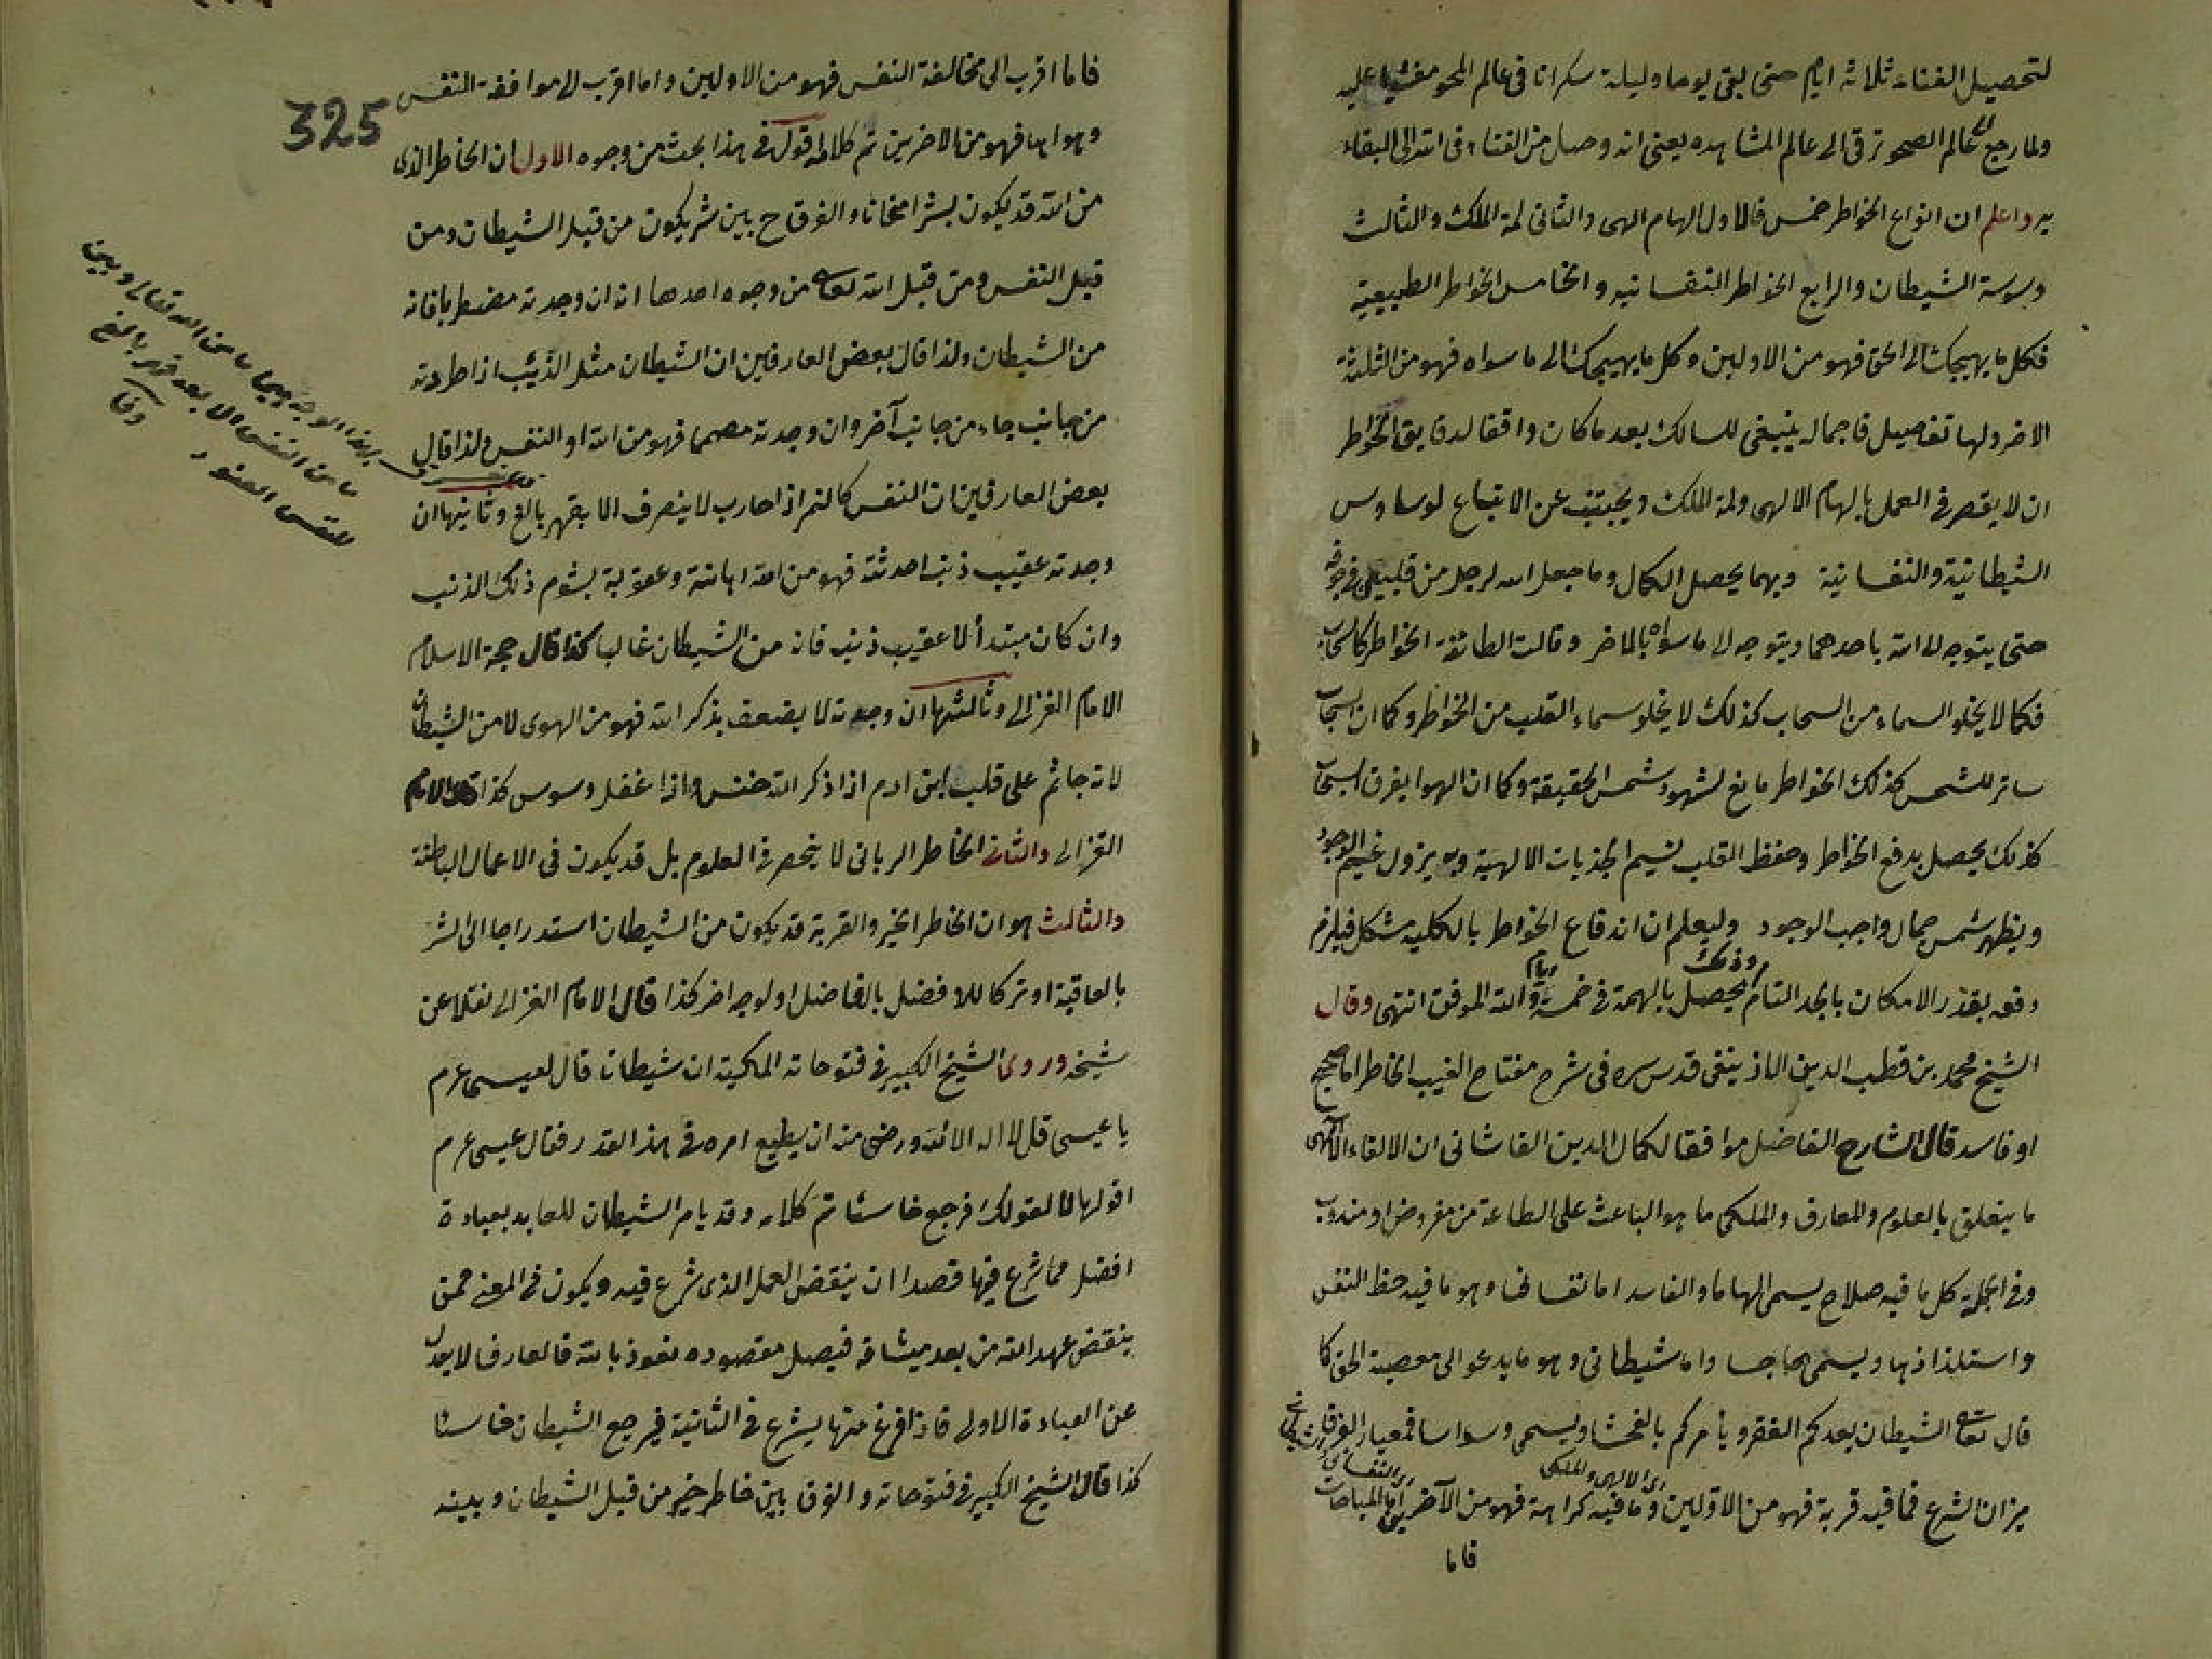 لتحصيل الفناء ثلاثة ايام حتى بقى يوما وليلة سكرانا فى عالم المحو مغشيا عليه
ولما رجع الى عالم الصحو ترقى الى عالم المشاهده يعنى انه وصل من الفناء فى الله الى البقاء
به واعلم ان انواع الخواطر خمس فالاول الهام الهى والثانى لمة الملك والثالث
وسوسة الشيطان والرابع الخواطر النفسانيه والخامس الخواطر الطبيعية
فكل ما يهيجك الى الحق فهو من الاولين وكل ما يهيجك الى ما سواه فهو من الثلثة
الاخر ولها تفصيل فاجماله ينبغى للسالك بعد ما كان واقفا لدقايق الخواطر
ان لا يقصر فى العمل بالهام الالهى ولمة الملك ويجتنب عن الاتباع لوساوس
الشيطانية والنفسانية وبهما يحصل الكمال وما جعل الله لرجل من قلبين فى جوفه
حتى يتوجه الى الله باحدهما ويتوجه الى ما سواه بالاخر وقالت الطائفة الخواطر كالسحاب
فكما لا يخلو السماء من السحاب كذلك لا يخلو سماء القلب من الخواطر وكما ان السحاب
ساتر للشمس كذلك الخواطر مانع لشهود شمس الحقيقة وكما ان الهوا يفرق السحاب
كذلك يحصل بدفع الخواطر وحفظ القلب نسيم الجذبات الالهية وبه يزول غيم الوجود
ويظهر شمس جمال واجب الوجود وليعلم ان اندفاع الخواطر بالكليه مشكل فيلزم
دفعه بقدر الامكان بالجد التام وذلك يحصل بالهمة فى خمسة ايام والله الموفق انتهى وقال
الشيخ محمد بن قطب الدين الازنيقى قدس سره فى شرح مفتاح الغيب الخاطر اما صحيح
او فاسد قال الشارح الفاضل موافقا لكمال الدين القاشانى ان الالقاء الالهى
ما يتعلق بالعلوم والمعارف والملكى ما هو الباعث على الطاعة من مفروض او مندوب
وفى الجملة كل ما فيه صلاح يسمى الهاما والفاسد اما نفسانى وهو ما فيه حظ النفس
واستلذاذها ويسمى هاجسا واما شيطانى وهو ما يدعو الى معصية الحق كما
قال تعالى الشيطان يعدكم الفقر ويأمركم بالفحشاء ويسمى وسواسا فمعيار الفرق
ميزان الشرع فما فيه قربة فهو من الاولين اى الالهى والملكى وما فيه كراهة فهو من الآخرين اى النفسانى والشيطانى اما المباحات
فاما
325
فاما اقرب الى مخالفة النفس فهو من الاولين واما اقرب الى موافقة النفس
وهواها فهو من الاخرين تم كلامه اقول فى هذا بحث من وجوه الاول ان الخاطر الذى
من الله قد يكون بشر امتحانا والفرق ح بين شر يكون من قبل الشيطان ومن
قبل النفس ومن قبل الله تعالى من وجوه احدها انه ان وجدته مضطربا فانه
من الشيطان ولذا قال بعض العارفين ان الشيطان مثل الذئب اذا طردته
من جانب جاء من جانب آخر وان وجدته مصمما فهو من الله او النفس ولذا قال
بعض العارفين ان النفس كالنمر اذا حارب لا ينصرف الا بقهر بالغ وثانيها ان
وجدته عقيب ذنب احدثته فهو من الله اهانة وعقوبة بشوم ذلك الذنب
وان كان مبتدأ لا عقيب ذنب فانه من الشيطان غالبا كذا قال حجة الاسلام
الامام الغزالى وثالثها ان وجدته لا يضعف بذكر الله فهو من الهوى لا من الشيطان
لانه جاثم على قلب ابن ادم اذا ذكر الله خنس واذا غفل وسوس كذا قال الامام
الغزالى والثانى الخاطر الربانى لا ينحصر فى العلوم بل قد يكون فى الاعمال الباطنة
والثالث هو ان الخاطر الخير والقربة قد يكون من الشيطان استدراجا الى الشر
بالعاقبة او تركا للافضل بالفاضل او لوجه اخر كذا قال الامام الغزالى نقلا عن
شيخه وروى الشيخ الكبير فى فتوحاته المكية ان شيطانا قال لعيسى عرم
يا عيسى قل لا اله الا الله ورضى منه ان يطيع امره فى هذا القدر فقال عيسى عرم
اقولها لا لقولك فرجع خاسئا تم كلامه وقد يامر الشيطان للعابد بعبادة
افضل مما شرع فيها قصدا ان ينقض العمل الذى شرع فيه ويكون فى المعنى ممن
ينقض عهد الله من بعد ميثاقه فيصل مقصوده نعوذ بالله فالعارف لا يعدل
عن العبادة الاولى فاذا فرغ منها يشرع فى الثانية فيرجع الشيطان خاسئا
كذا قال الشيخ الكبير فى فتوحاته والفرق بين خاطر خير من قبل الشيطان وبينه
ما من الله تعالى وبين
ما من النفس الا بعد قهر بالغ